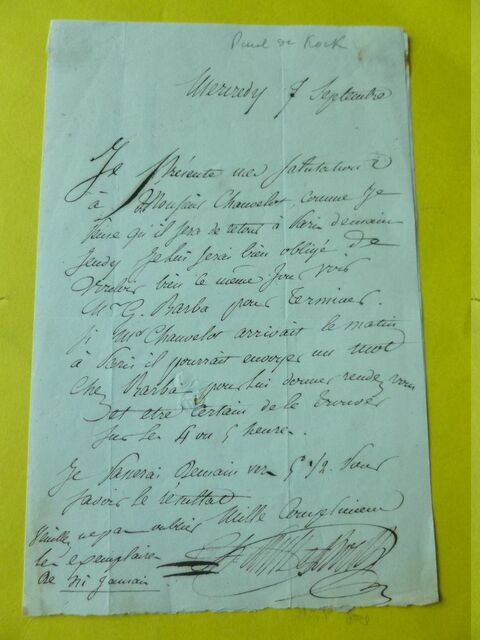 Paul de Kock
Mercredy 7 Septembre
Je présente mes salutations
à Monsieur Chauvelot, comme je
pense qu'il sera de retour à Paris demain
Jeudy Je lui serai bien obligé de
vouloir bien le même jour voir
Mr G. Barba pour terminer.
Si Mr Chauvelot arrivait le matin
à Paris il pourrait envoyer un mot
chez Barba pour lui donner rendez vous
et etre certain de le trouver
sur les 4 ou 5 heures.
Je passerai demain vers 5 1/2 pour
savoir le résultat
Mille compliments
Veuillez ne pas oublier
les exemplaires
de Ni Jamais